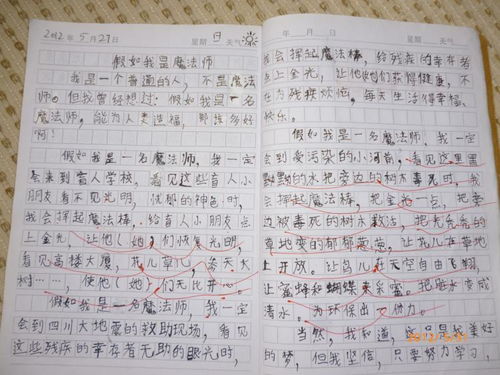 2012年5月27日 星期日 天气
假如我是魔法师
我是一个普通的人,不是魔法
师。但我曾经想过:假如我是一名
魔法师,能为人类造福,那该多好
啊!
假如我是一名魔法师,我一定
会来到盲人学校,看见这些盲人小
朋友看不见光明,忧郁的神色时,
我会挥起魔法棒,给盲人小朋友点
上金光,让他(她)们恢复光明,
看见高楼大厦,花儿草儿,参天大
树……,使他(她)们无比开心。
假如我是一名魔法师,我一定
会到四川大地震的救助现场,看见
这些残疾的幸存者无助的眼光时,
年 月 日 星期 天气
我会挥起魔法棒,给残疾的幸存者
点上金光,让他(她)们获得健康,不
在为残疾烦恼,每天生活得幸福、
快乐。
假如我是一名魔法师,我一定
会到受污染的小河旁,看见这里黑
黝黝的水把旁边的树木毒死时,我
会挥起魔法棒,把金光一点,把旁
边被毒死的树木救活,把光秃秃的
草地变的郁郁葱葱,让花儿在草地
上开放。让鸟儿在天空自由飞翔,
让蜜蜂和蝴蝶来采蜜。把脏水变成
清水。为环保出一份力。
当然,我知道,这只是我美好
的梦,但我坚信,只要努力学习,